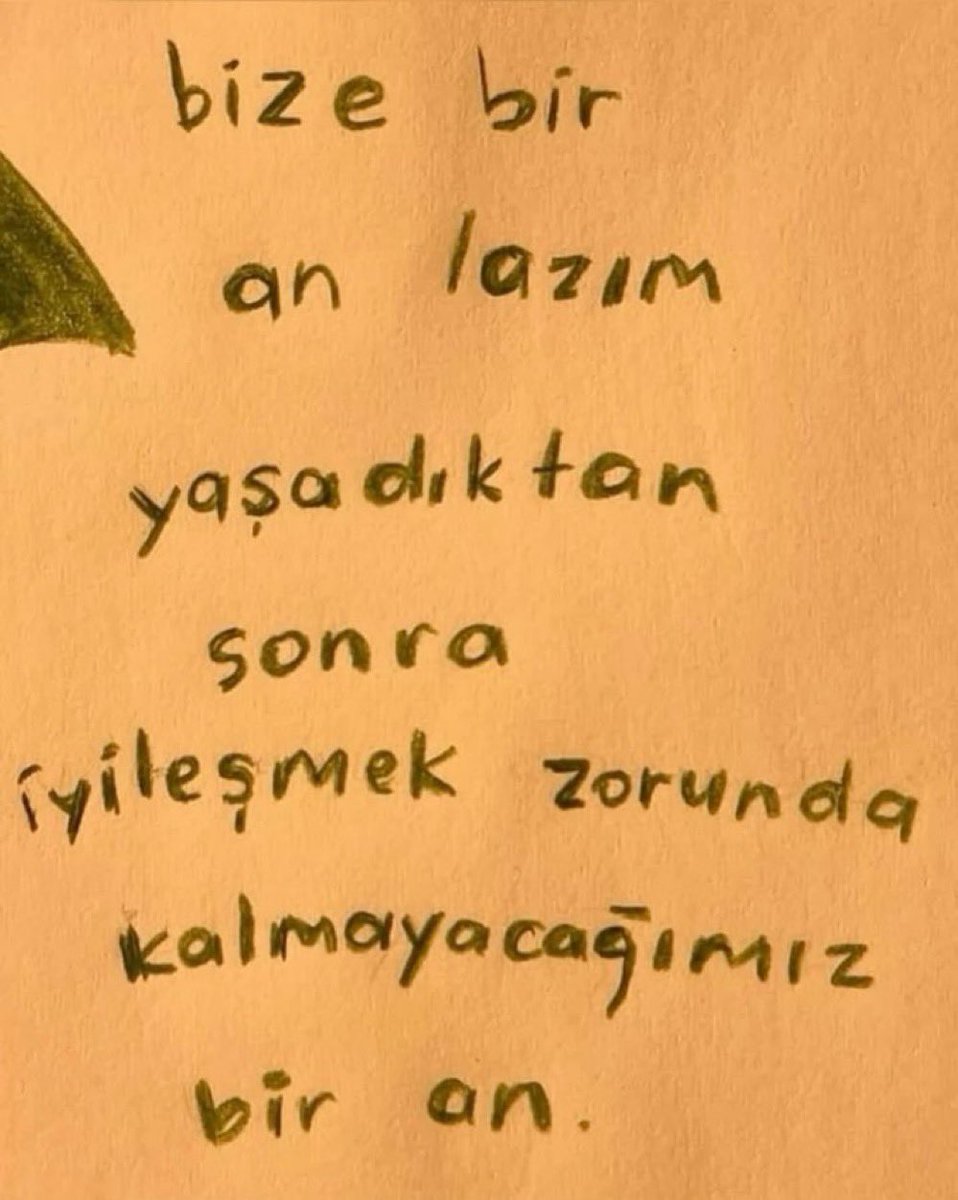 bize bir
an lazım
yaşadıktan
sonra
iyileşmek zorunda
kalmayacağımız
bir an.